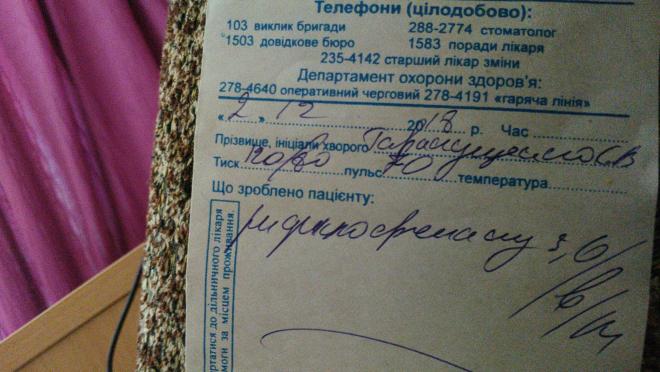 Телефони (цілодобово):
103 виклик бригади 288-2774 стоматолог
1503 довідкове бюро 1583 поради лікаря
235-4142 старший лікар зміни
Департамент охорони здоров'я:
278-4640 оперативний черговий 278-4191 «гаряча лінія»
«2» 12 2018 р. Час
Прізвище, ініціали хворого
Тиск пульс 70 температура
Що зроблено пацієнту:
3,0
в/м
ртатися до дільничного лікаря
моги за місцем проживання.